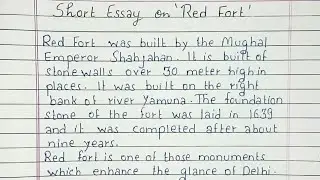 Short Essay on 'Red Fort'
Red Fort was built by the Mughal
Emperor Shahjahan. It is built of
stone walls over 30 meter high in
places. It was built on the right
bank of river Yamuna. The foundation
stone of the fort was laid in 1639
and it was completed after about
nine years.
Red fort is one of those monuments
which enhance the glance of Delhi.